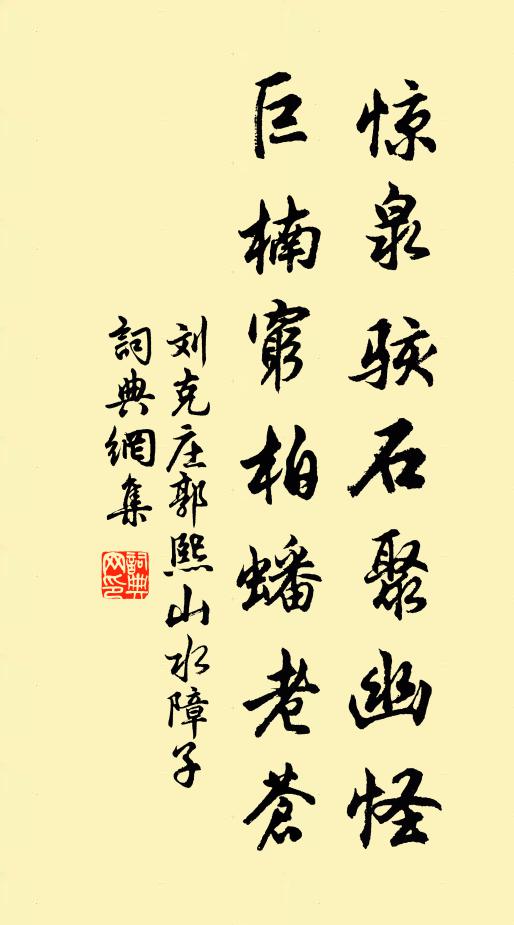 惊泉骇石聚幽怪
巨楠穷柏蟠老苍
刘克庄郭熙山水障子
詞典網集
詞典网印